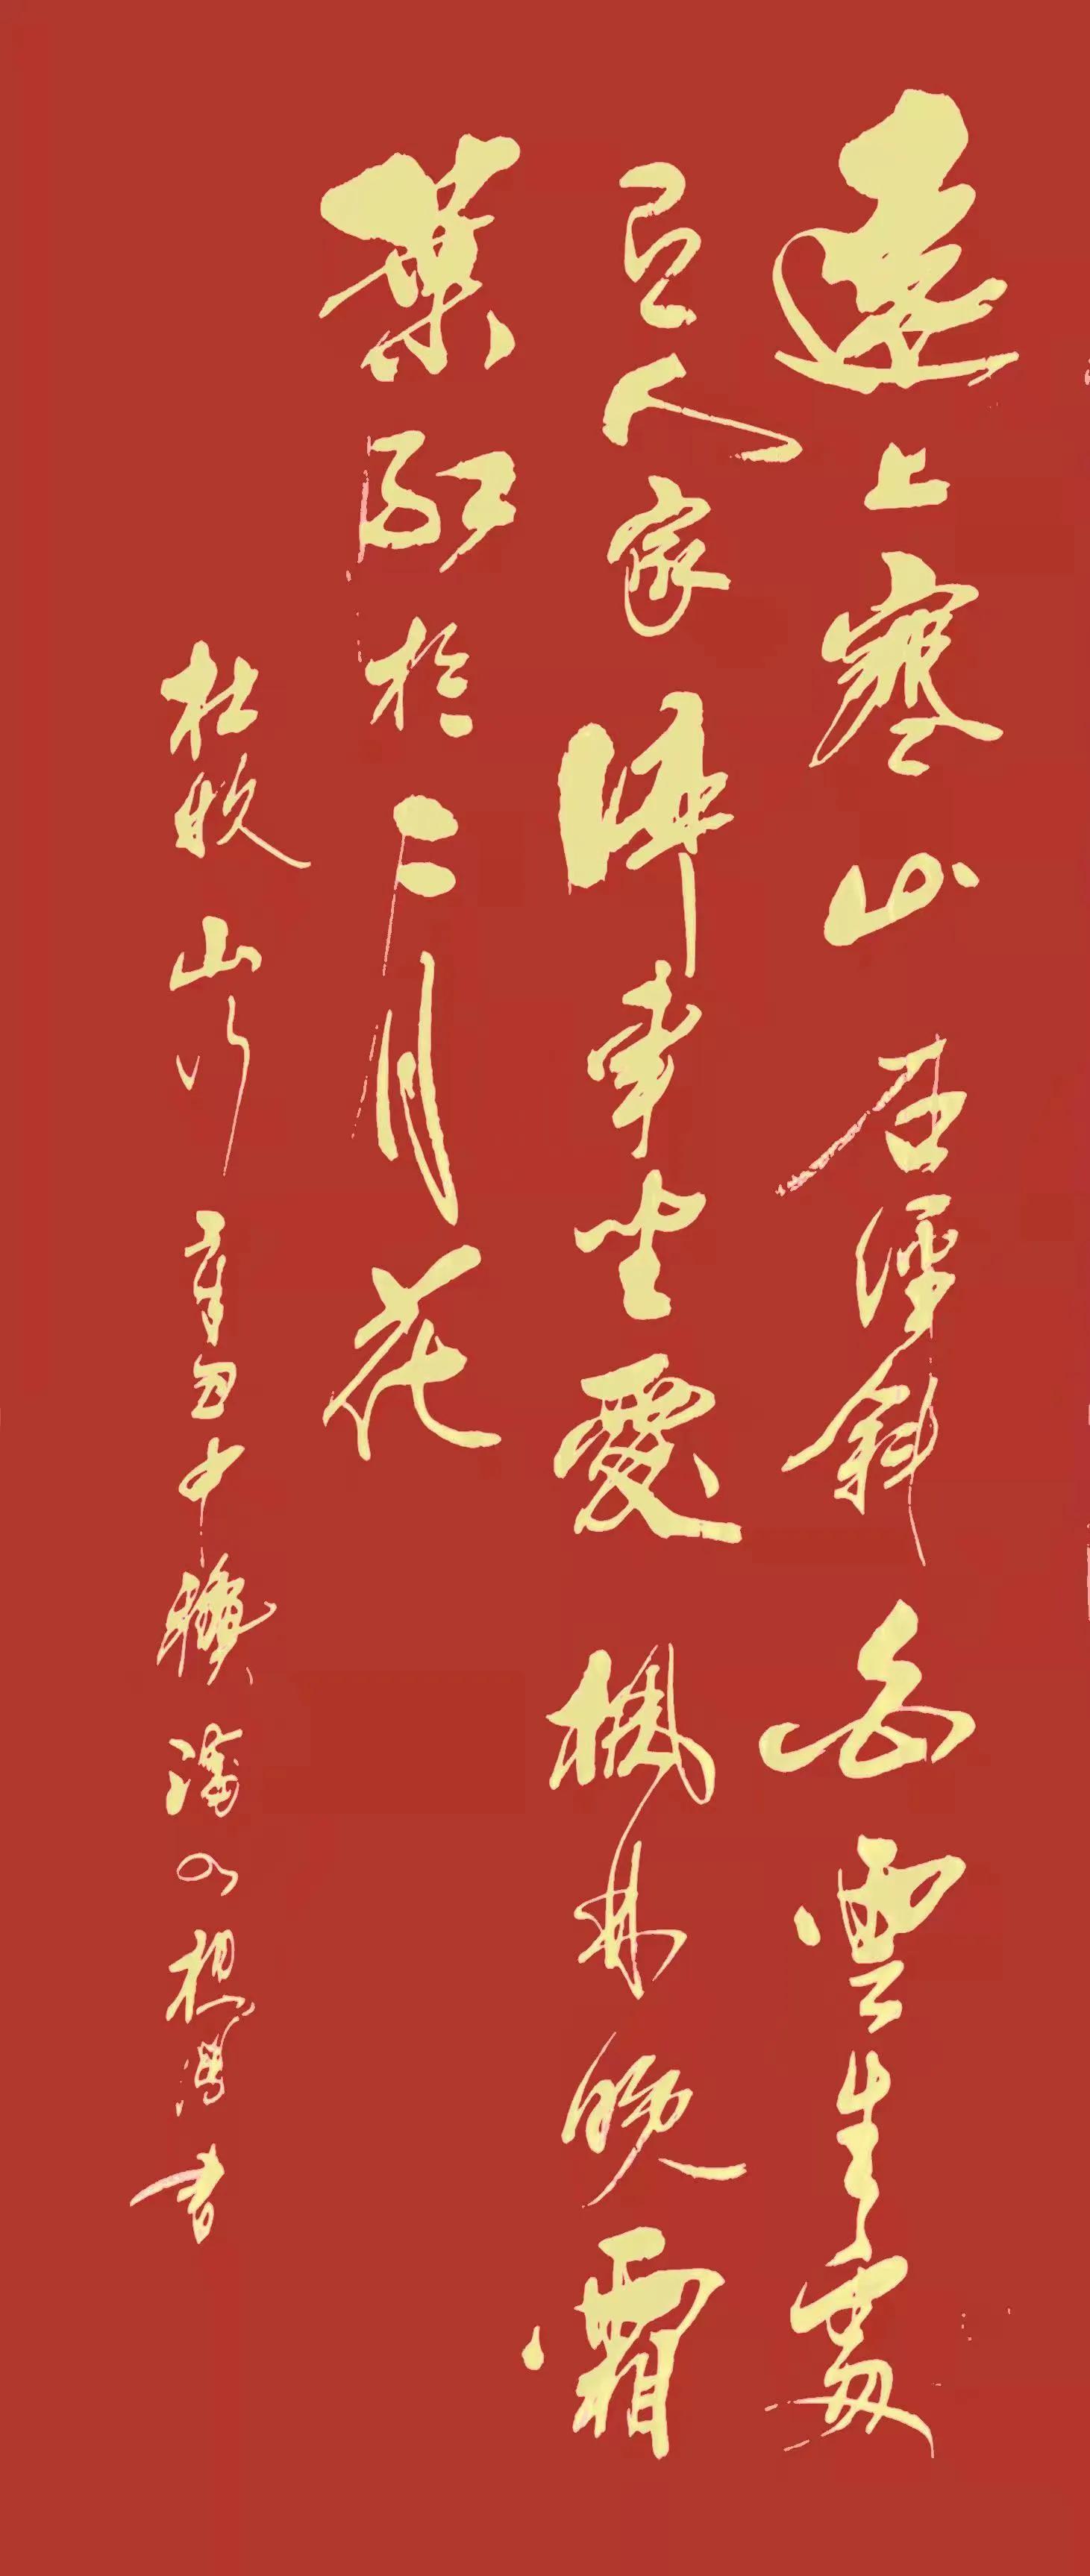 遠上寒山石徑斜白雲生處
有人家停車坐愛楓林晚霜
葉紅於二月花
杜牧山行辛丑中秋書